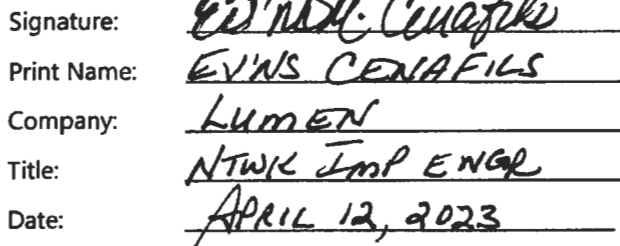 Signature: Ev'ns M. Cenafils
Print Name: EV'NS CENAFILS
Company: LUMEN
Title: NTWK IMP ENGR
Date: APRIL 12, 2023